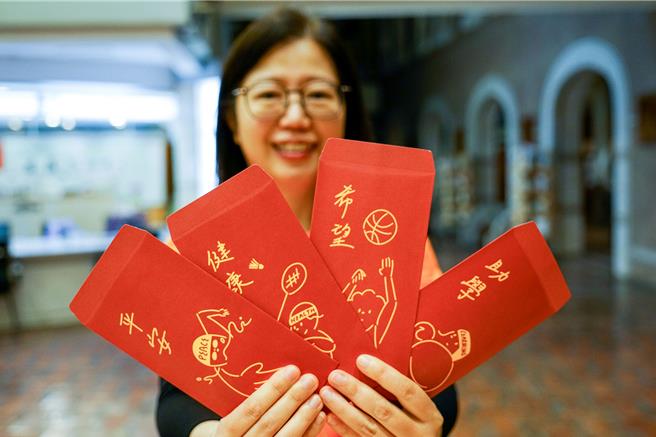 平安
PEACE
健康
HEALTH
希望
助學